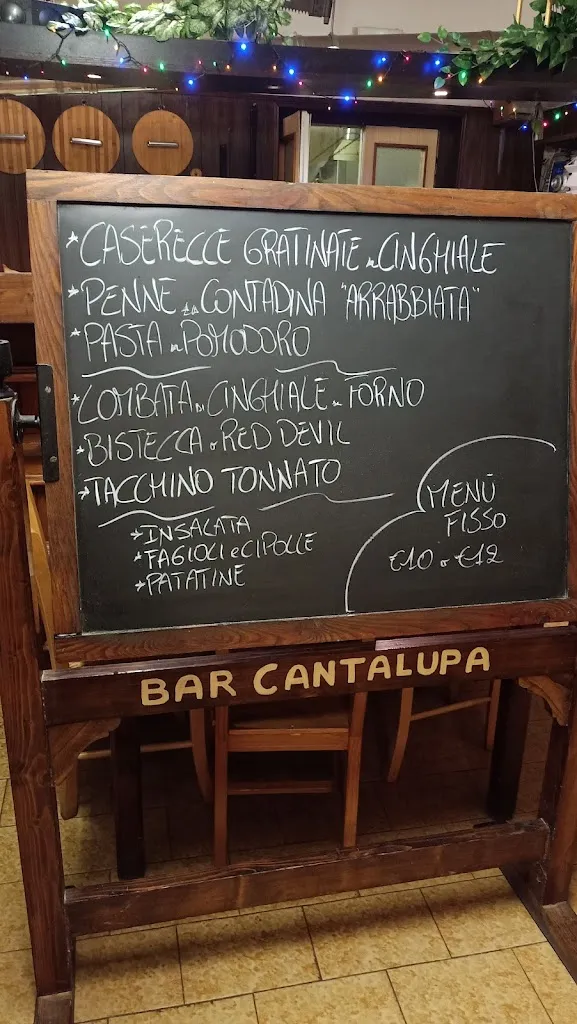 *CASERECCE GRATINATE al CINGHIALE
*PENNE alla CONTADINA "ARRABBIATA"
*PASTA al POMODORO
*LOMBATA di CINGHIALE al FORNO
*BISTECCA o RED DEVIL
*TACCHINO TONNATO
*INSALATA
*FAGIOLI e CIPOLLE
*PATATINE
MENÙ
FISSO
€10 o €12
BAR CANTALUPA